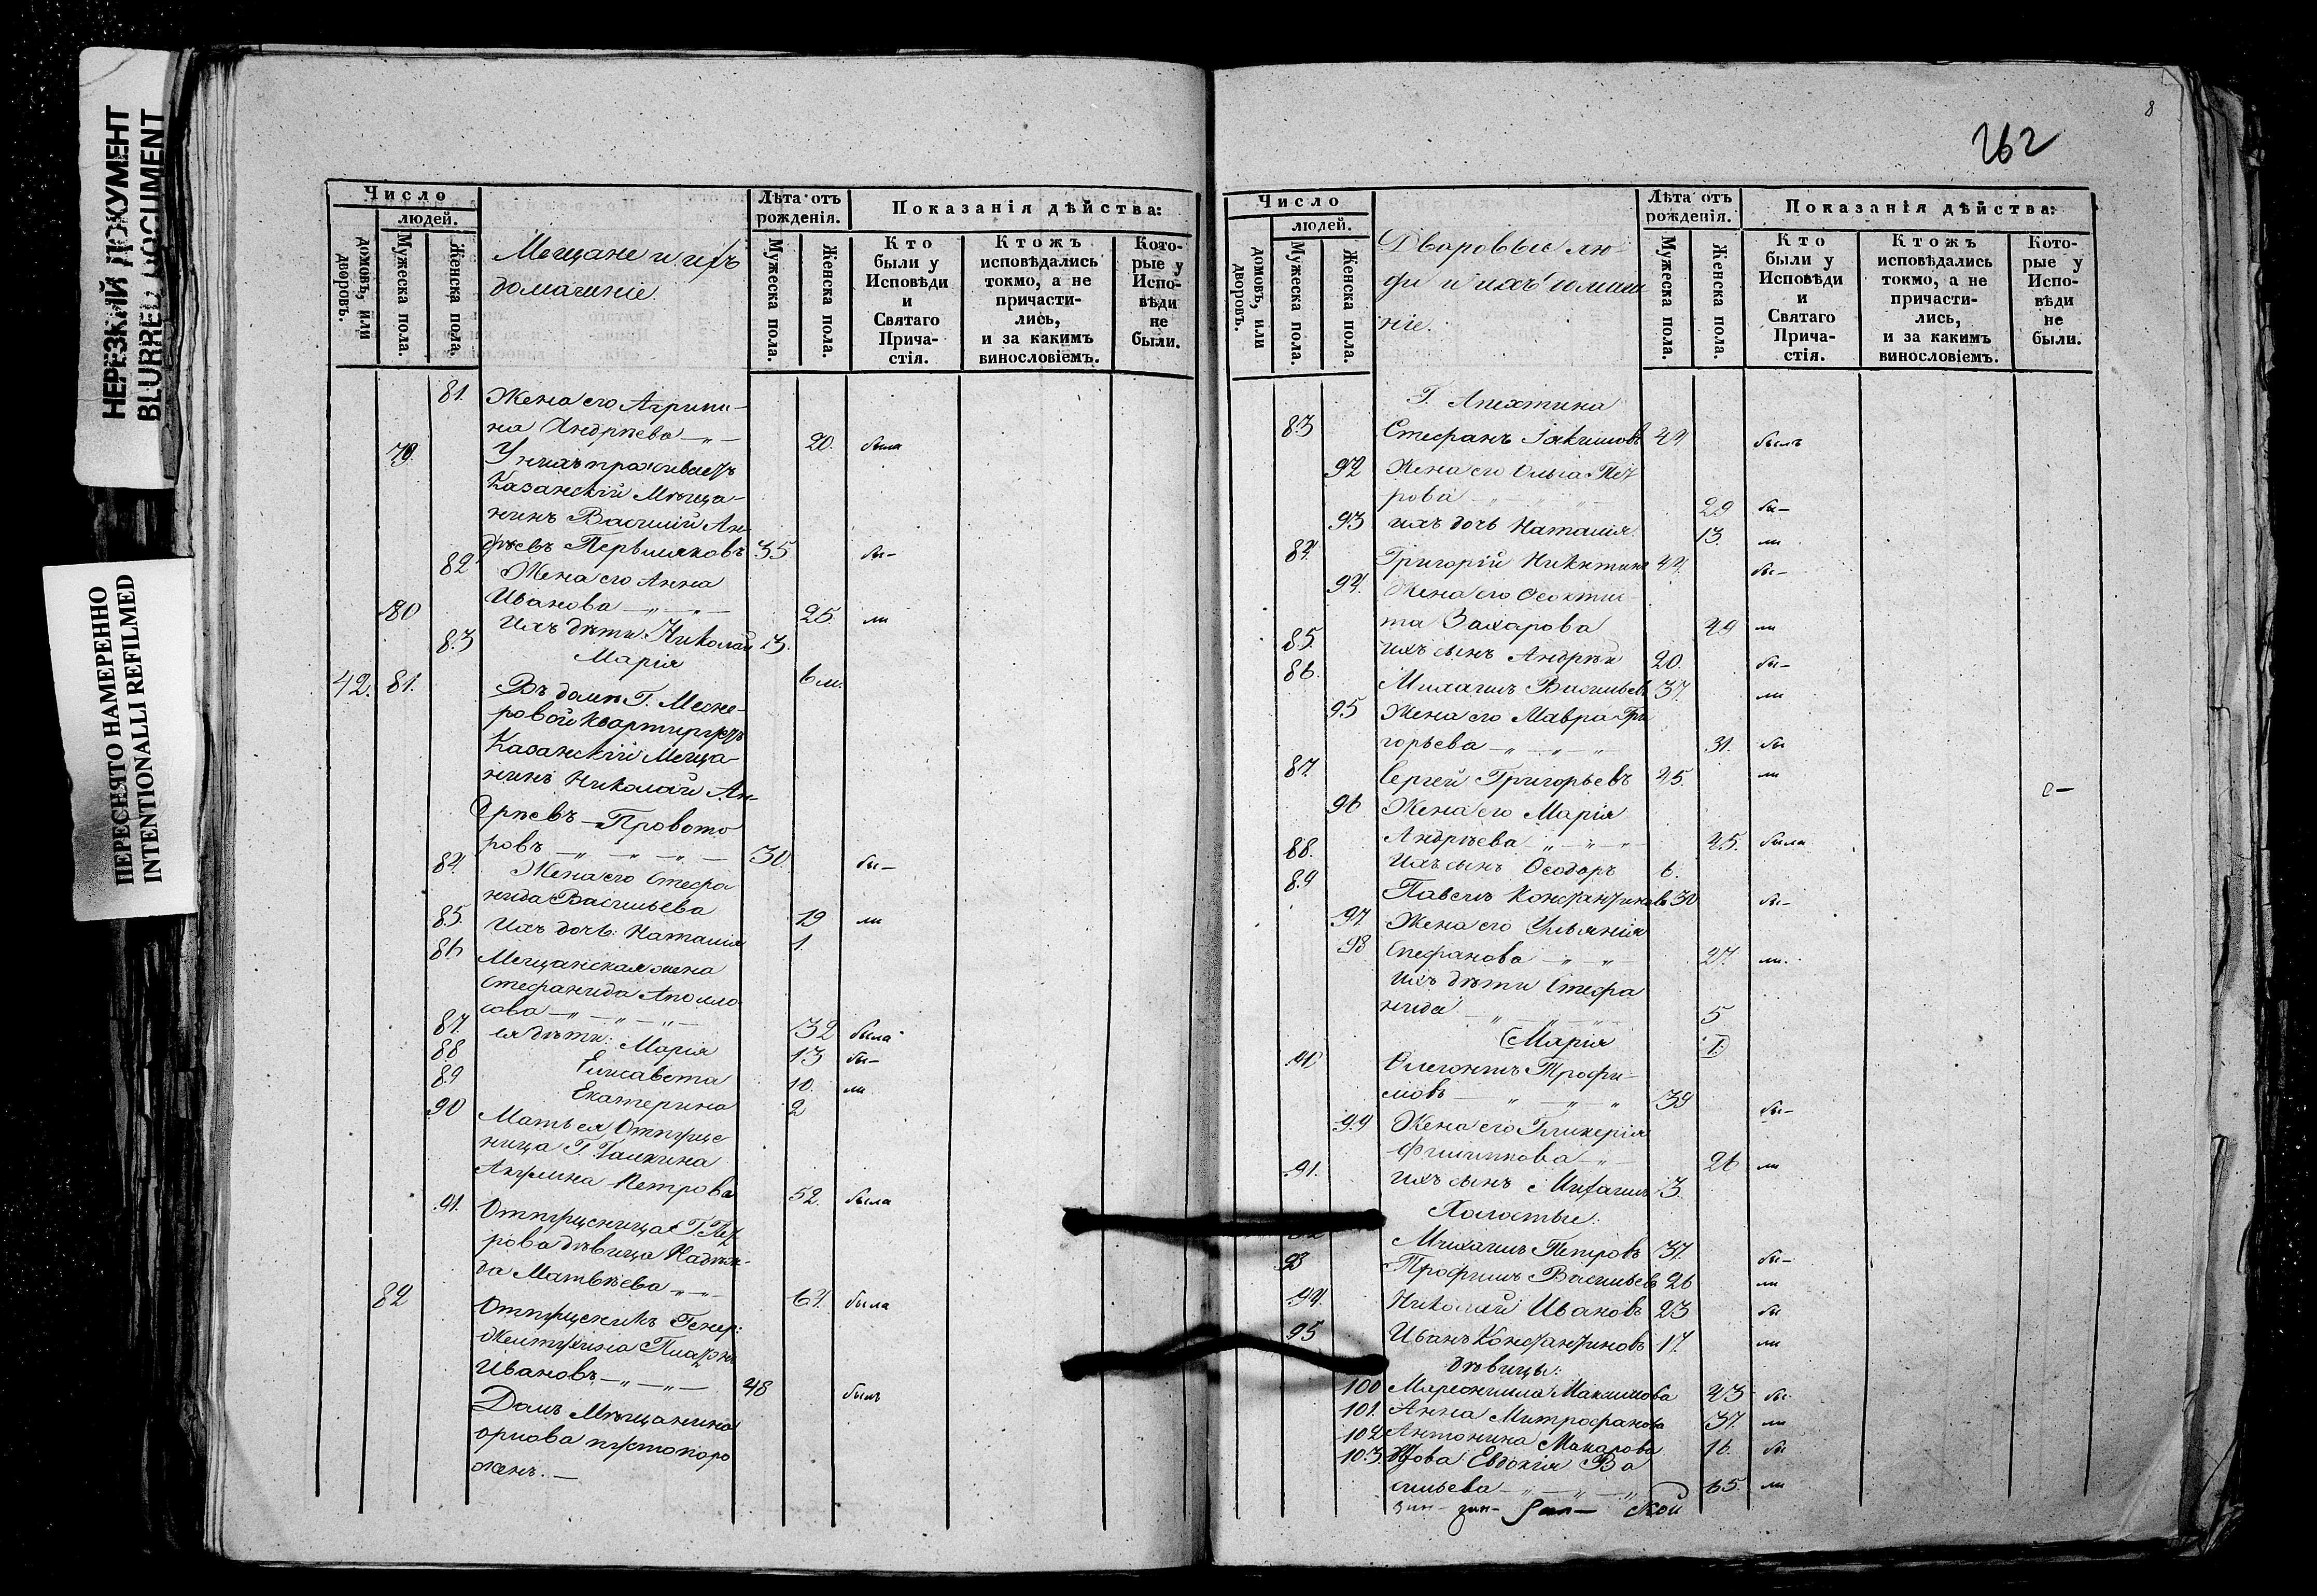 НЕРЕЗКИЙ ДОКУМЕНТ
BLURRED DOCUMENT
ПЕРЕСНЯТО НАМЕРЕННО
INTENTIONALLI REFILMED
Число
людей.
домовъ, или дворовъ.
Мужеска пола.
Женска пола.
Мещане и ихъ
домашніе.
Лѣта отъ рожденія.
Мужеска пола.
Женска пола.
Показанія дѣйства:
Кто были у Исповѣди и Святаго Прича-стія.
Ктожъ исповѣдались токмо, а не причасти-лись, и за какимъ винословіемъ.
Кото-рые у Испо-вѣди не были.
81. Жена его Агрипи-
на Андрѣева 20. была
79. У нихъ проживаетъ
Казанскій Мѣща-
нинъ Василий Ан-
дрѣевъ Первшаковъ 35 бы-
82 Жена его Анна
Иванова 25. ли
80 Ихъ дѣти: Николай 3.
83 Марія 6 м.
42. 81. Въ домѣ Г.
ровой квартируетъ
Казанскій Меща-
нинъ Николай Ан-
дрѣевъ Провото
ровъ 30. бы-
84. Жена его Стефа
нида Васильева 19 ли
85. Ихъ дочь: Наталия 1.
86 Мещанская жена
Стефанида Аполло
сова 32 была
87. ея дѣти: Марія 13 бы-
88 Елисавета 10. ли
89 Екатерина 2
90 Мать ея Отпуще
ница Г.
Акулина Петрова 52. была
91. Отпущеница Г. Пет
рова дѣвица Надеж-
да Матвѣева 64. была
82 Отпущеникъ Генер:
Платонъ
Ивановъ 48 былъ
Домъ Мѣщанина
орлова пустопоро
женъ.
8
262
Число
людей.
домовъ, или дворовъ.
Мужеска пола.
Женска пола.
Дворовые лю
ди и ихъ домаш
ніе.
Лѣта отъ рожденія.
Мужеска пола.
Женска пола.
Показанія дѣйства:
Кто были у Исповѣди и Святаго Прича-стія.
Ктожъ исповѣдались токмо, а не причасти-лись, и за какимъ винословіемъ.
Кото-рые у Испо-вѣди не были.
Г. Апехтина
83 Стефанъ Іакимовъ 44 былъ
92 Жена его Ольга Пет
рова 29 бы-
93 ихъ дочь Наталия 13. ли
84. Григорій Никитинъ 44. бы-
94. Жена его Ѳеокти
та Захарова 49 ли
85. ихъ сынъ Андрѣй 20. бы-
86. Михаилъ Васильевъ 37 ли
95 Жена его Мавра Гри
горьева 31. бы
87. Сергей Григорьевъ 45. ли
96 Жена его Марія
Андрѣева 45. была
88. Ихъ сынъ Ѳеодоръ 6.
89 Павелъ Константиновъ 30 бы-
97 Жена его Ульянія
98 Стефанова 27. ли.
Ихъ дѣти Стефа
нида 5
Марія 1.
90 Флегонтъ Трофи-
мовъ 39 бы-
99 Жена его Гликерія
Филипова 26 ли
91. ихъ сынъ Михаилъ 3.
Холостые:
Михаилъ Петровъ 37. бы-
93 Трофимъ Васильевъ 26 ли
94. Николай Ивановъ 23 бы
95 Иванъ Константиновъ 17. ли
дѣвицы:
100 Мареонилла Максимова 43 бы
101. Анна Митрофанова 37. ли
102 Антонина Макарова 16. бы
103. Вдова Евдокія Ва
сильева 65. ли